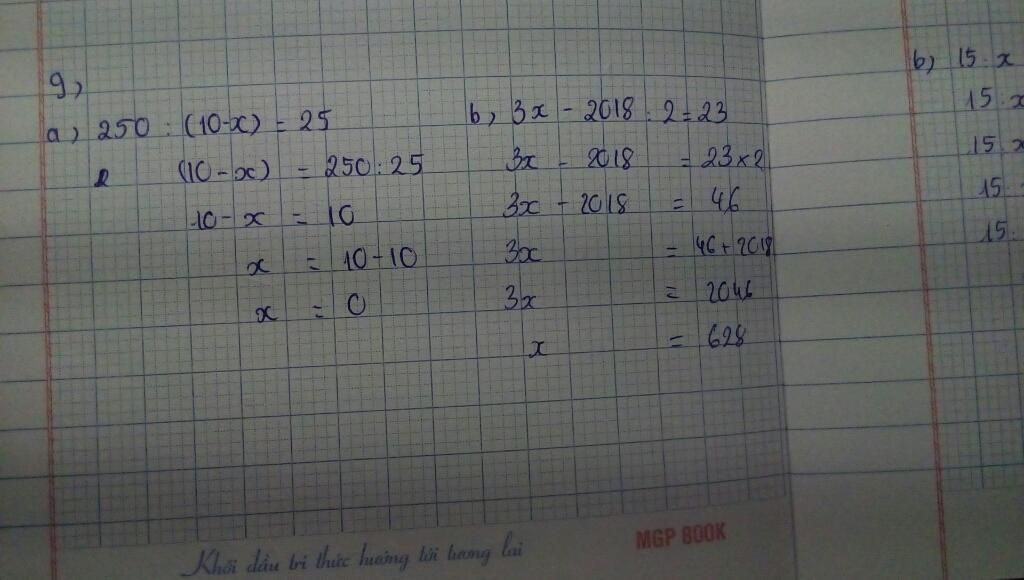 9,
a, 250 : (10-x) = 25
(10-x) = 250:25
10-x = 10
x = 10-10
x = 0
b, 3x - 2018 : 2 = 23
3x - 2018 = 23×2
3x - 2018 = 46
3x = 46+2018
3x = 2046
x = 628
b) 15. x
15. x
15. x
15.
15.
Khởi đầu tri thức hướng tới tương lai
MGP BOOK